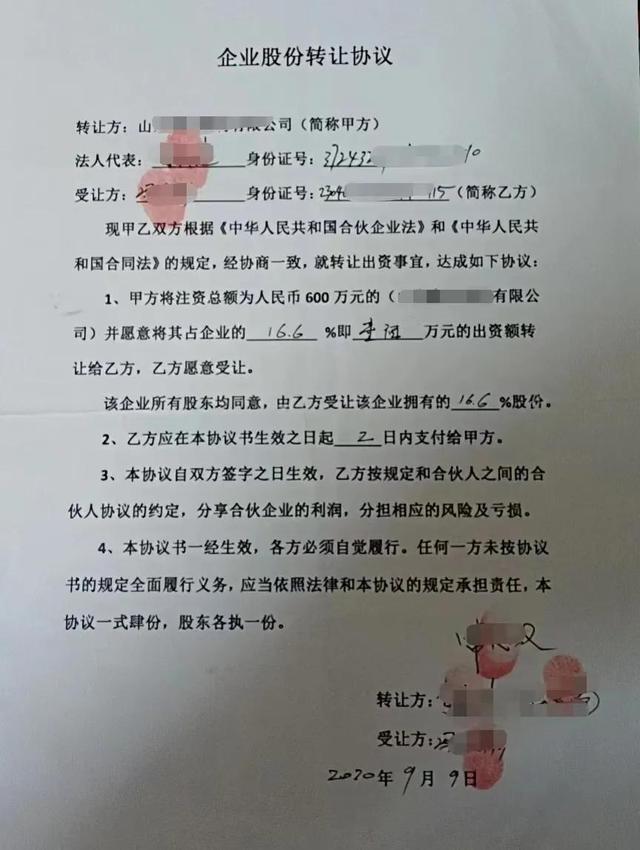 企业股份转让协议
转让方：山 有限公司（简称甲方）
法人代表： 身份证号：372432 10
受让方： 身份证号：230 15（简称乙方）
现甲乙双方根据《中华人民共和国合伙企业法》和《中华人民共
和国合同法》的规定，经协商一致，就转让出资事宜，达成如下协议：
1、甲方将注资总额为人民币 600 万元的（ 有限公
司）并愿意将其占企业的 16.6 %即 万元的出资额转
让给乙方，乙方愿意受让。
该企业所有股东均同意，由乙方受让该企业拥有的 16.6 %股份。
2、乙方应在本协议书生效之日起 2 日内支付给甲方。
3、本协议自双方签字之日生效，乙方按规定和合伙人之间的合
伙人协议的约定，分享合伙企业的利润，分担相应的风险及亏损。
4、本协议书一经生效，各方必须自觉履行。任何一方未按协议
书的规定全面履行义务，应当依照法律和本协议的规定承担责任，本
协议一式肆份，股东各执一份。
转让方：
受让方：
2020年 9月 9日